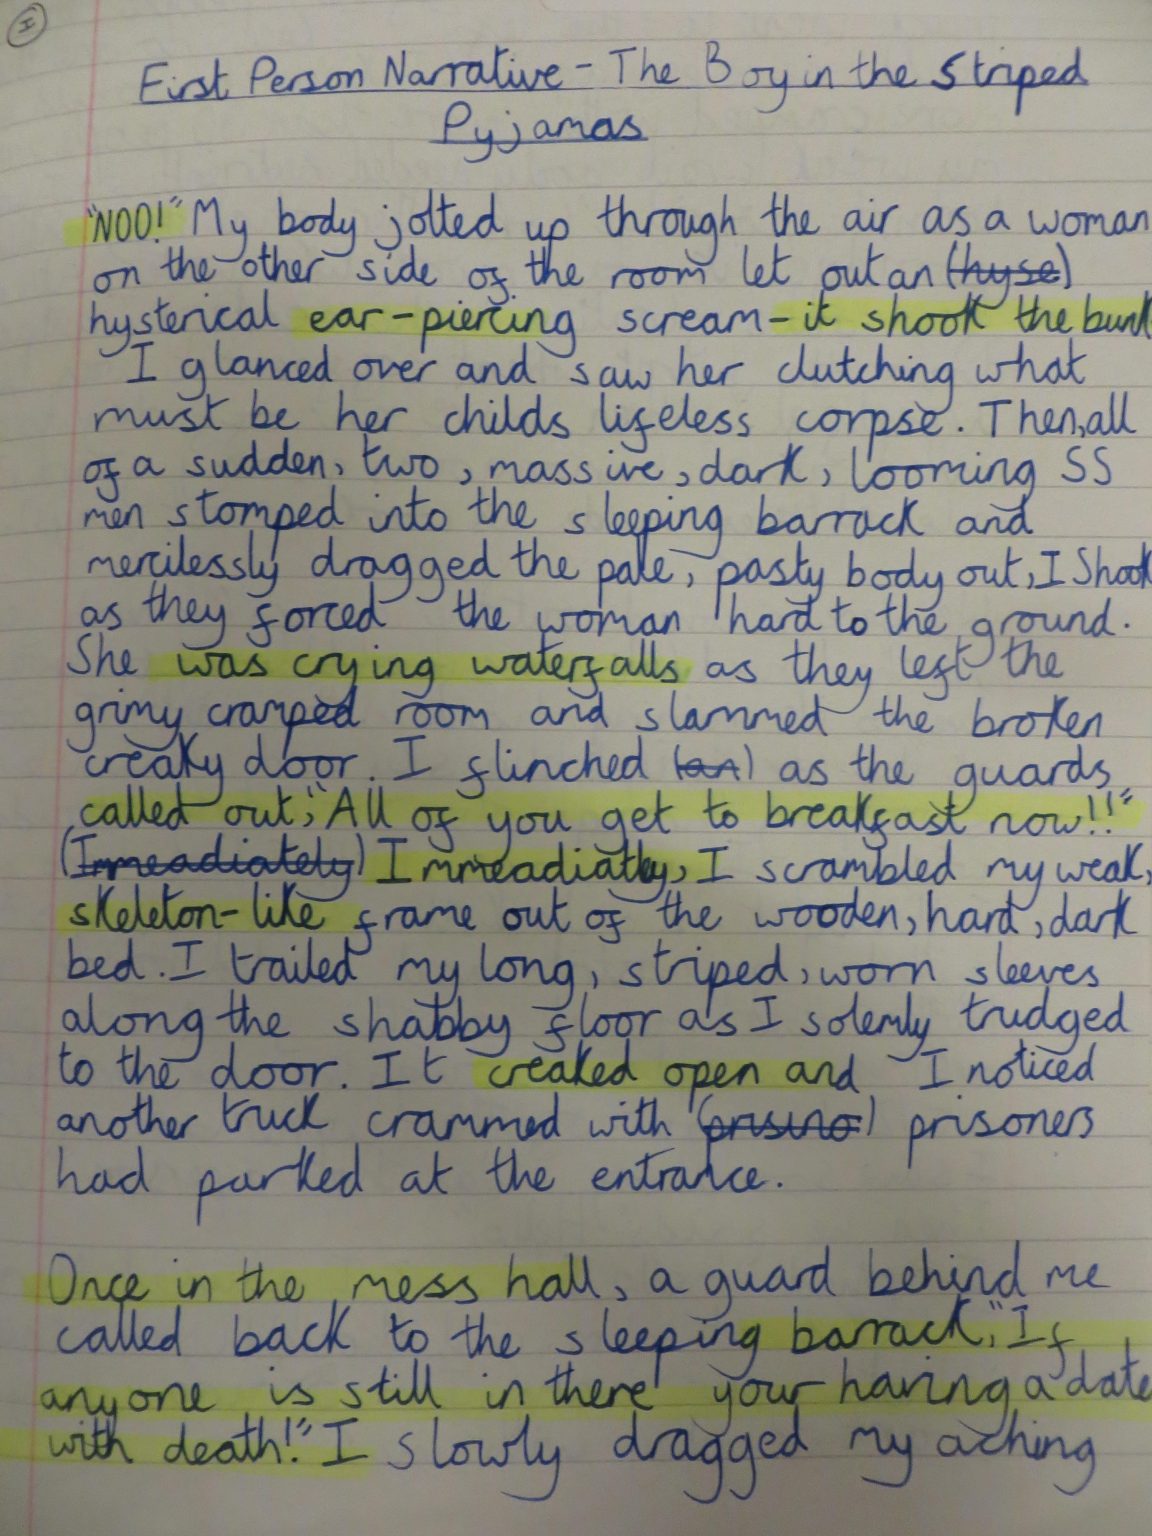 First Person Narrative - The Boy in the Striped
Pyjamas
"NOO!" My body jolted up through the air as a woman
on the other side of the room let out an (hyse)
hysterical ear-piercing scream - it shook the bunk
I glanced over and saw her clutching what
must be her childs lifeless corpse. Then, all
of a sudden, two, massive, dark, looming SS
men stomped into the sleeping barrack and
mercilessly dragged the pale, pasty body out, I Shook
as they forced the woman hard to the ground.
She was crying waterfalls as they left the
grimy cramped room and slammed the broken
creaky door. I flinched (an) as the guards
called out, "All of you get to breakfast now!!"
(Immeadiately) Immeadiatley, I scrambled my weak,
skeleton-like frame out of the wooden, hard, dark
bed. I trailed my long, striped, worn sleeves
along the shabby floor as I solemly trudged
to the door. It creaked open and I noticed
another truck crammed with (prisino) prisoners
had parked at the entrance.
Once in the mess hall, a guard behind me
called back to the sleeping barrack, "If
anyone is still in there your having a date
with death!" I slowly dragged my aching